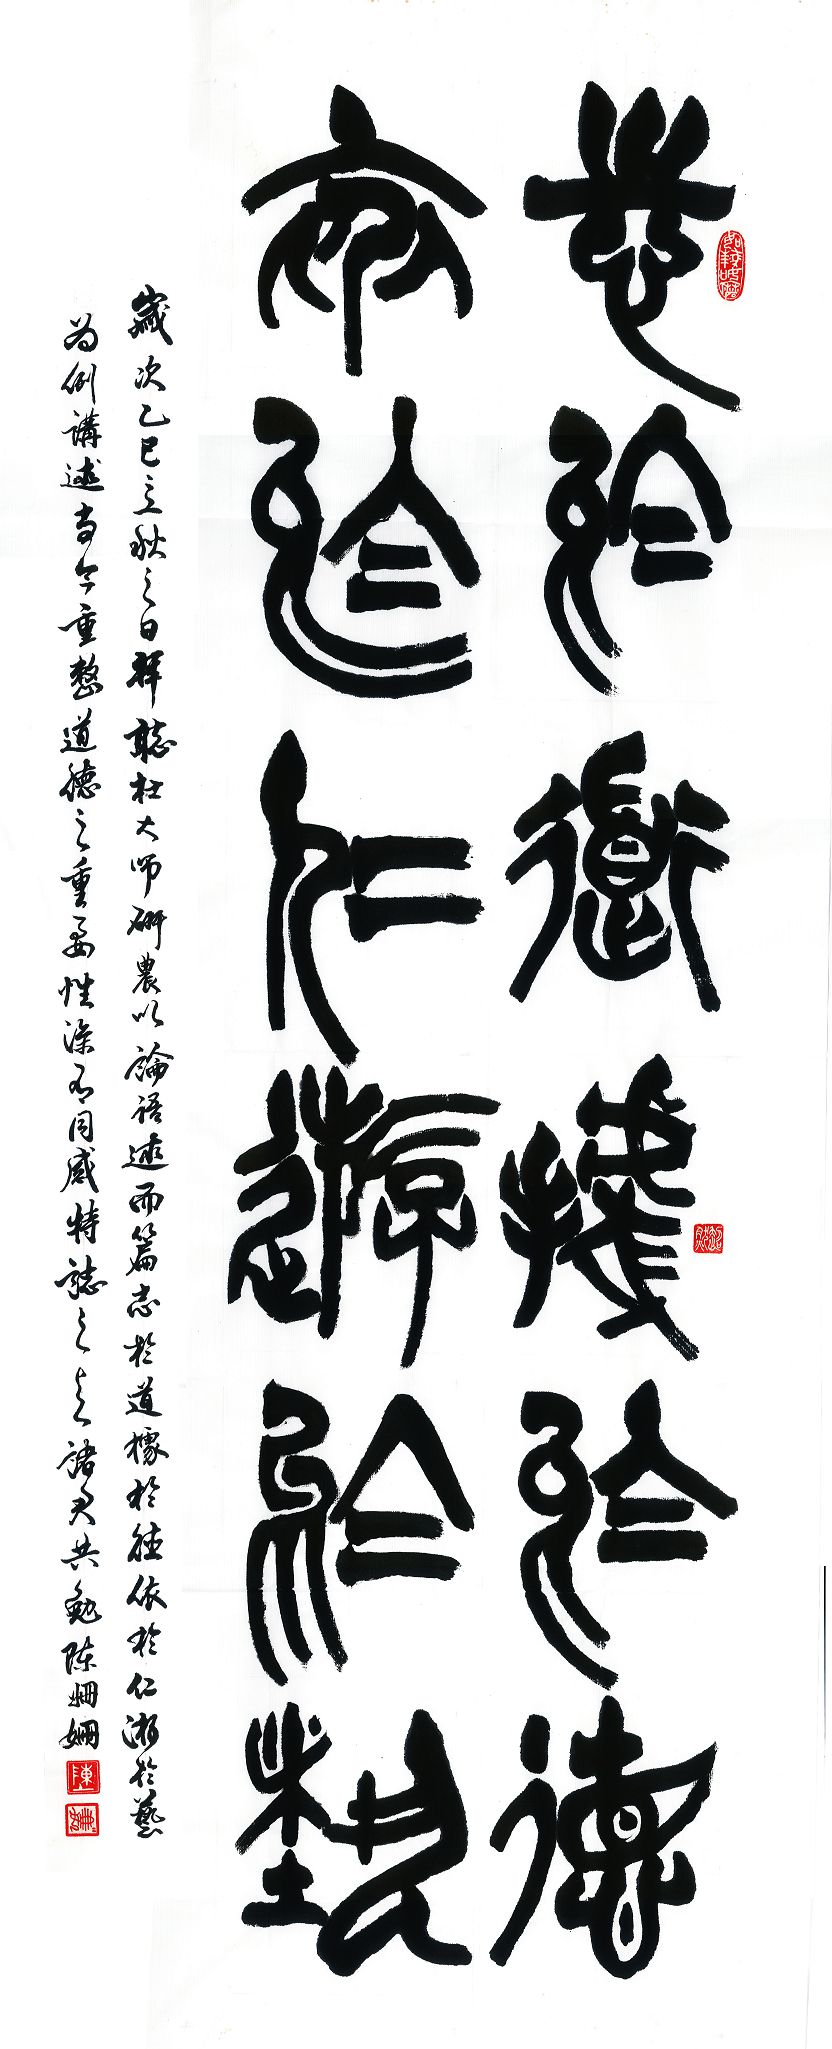 志於道據於德
依於仁遊於藝
歲次乙巳立秋之日拜聽杜大師研農以論語述而篇志於道據於德依於仁游於藝
為例講述當今重整道德之重要性深有同感特誌之與諸君共勉陳姍姍
陳